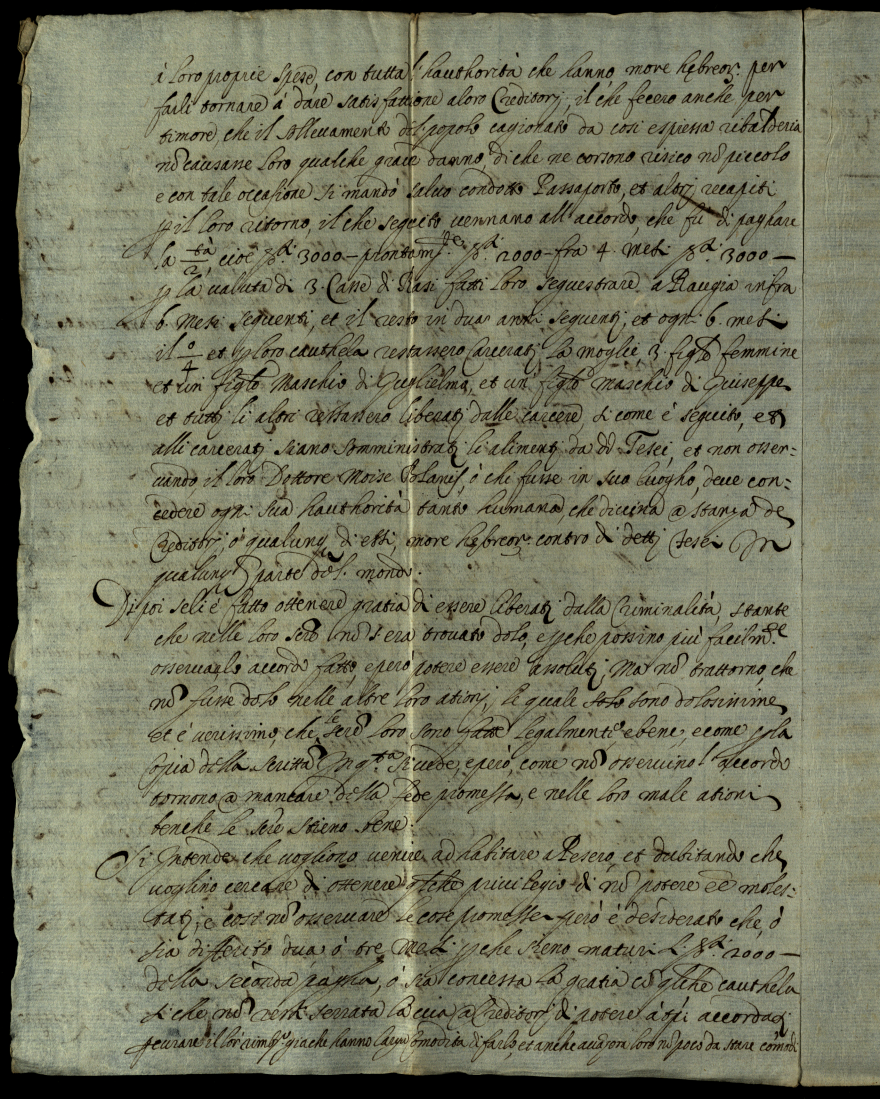 à loro proprie spese, con tutta l'hauthorità che hanno more hebreor: per
farli tornare à dare satisfattione a loro Creditorj, il che fecero anche per
timore, che il sollevamento del popolo cagionato da cosi espressa ribalderia
nõ causasse loro qualche grave danno, di che ne corsono risico nõ piccolo
e con tale occasione si mandò salvo condotto Passaporto, et altri recapiti
p il loro ritorno, il che seguito vennano all'accordo, che fù di paghare
la cioè 3000 – prontamte 2000 – fra 4 mesi 3000 –
p la valuta di 3 Casse di Rasi fatti loro sequestrare à Raugia infra
6 mesi seguenti, et il resto in dua anni seguenti, et ogni 6 mesi
il et p loro cauthela restassero Carceratj la moglie, 3 figle femmine
et un figlo Maschio di Guglielmo, et un figlo maschio di Guiseppe
et tuttj li altri restassero liberatj dalle carcere, si come è seguito, et
alli carceratj siano somministratj li alimentj da dd. Tesei, et non osser=
vando, il loro Dottore Moise ò chi fusse in suo luogho, deve con=
cedere ogni sua hauthorità tanto humana, che divina @ stanza de
Creditorj, ò qualunq di essi, more hebreor: contro di dettj Tesei In
qualunq parte del mondo.
Di poi seli è fatto ottenere gratia di essere liberatj dalla Criminalità stante
che nelle loro nõ s'era trovato dolo, e pche possino più facilmte
osservare lo accordo fatto, e però potere essere assolutj, Ma nõ trattorno, che
nõ fusse dolo nelle altre loro ationj, le quale solo sono dolosissime
et è verissimo, che le loro sono legalmente e bene, e come p la
Copia della scritta In qta si vede, e però, come nõ osservino l'accordo
tornono @ mancare della fede promessa, e nelle loro male ationi
benche le stieno bene.
Si Intende che vogliono venire ad habitare a Pesero, et dubitando che
voglino cercare di ottenere qlche privilegio di nõ potere eẽ moles=
tatj, e cosi nõ osservare le cose promesse però è desiderato che, ò
sia differito dua ò tre mesi pche sieno maturi li 2000 –
della seconda pagha, ò sia concessa la gratia cõ qlche cauthela
si che nõ resti serrata la via a Creditorj di potere
il lor già che hanno comodità di farlo, et anche loro nõ poco da stare comodi